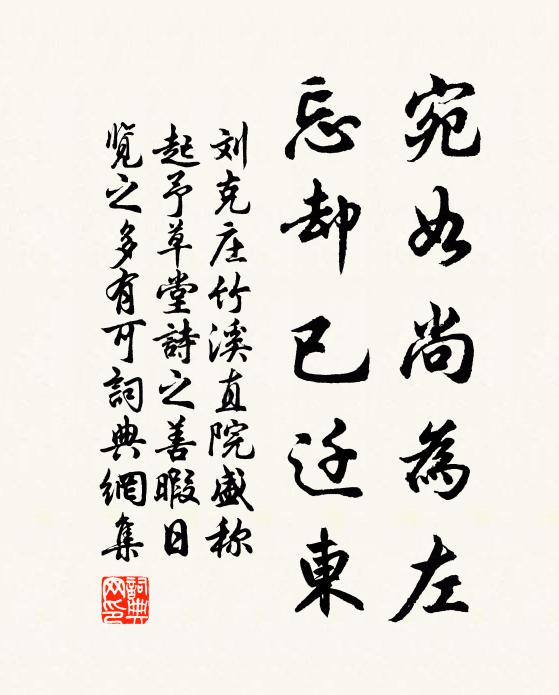 宛如尚為左
忘却已迁東
刘克庄竹溪直院盛称
起予草堂詩之善暇日
览之多有可詞典網集
詞典網印